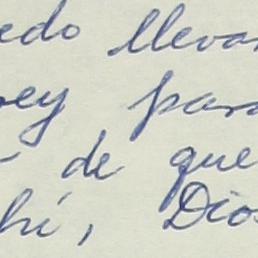 edo llevar
rey para
- de que
hí, Dios